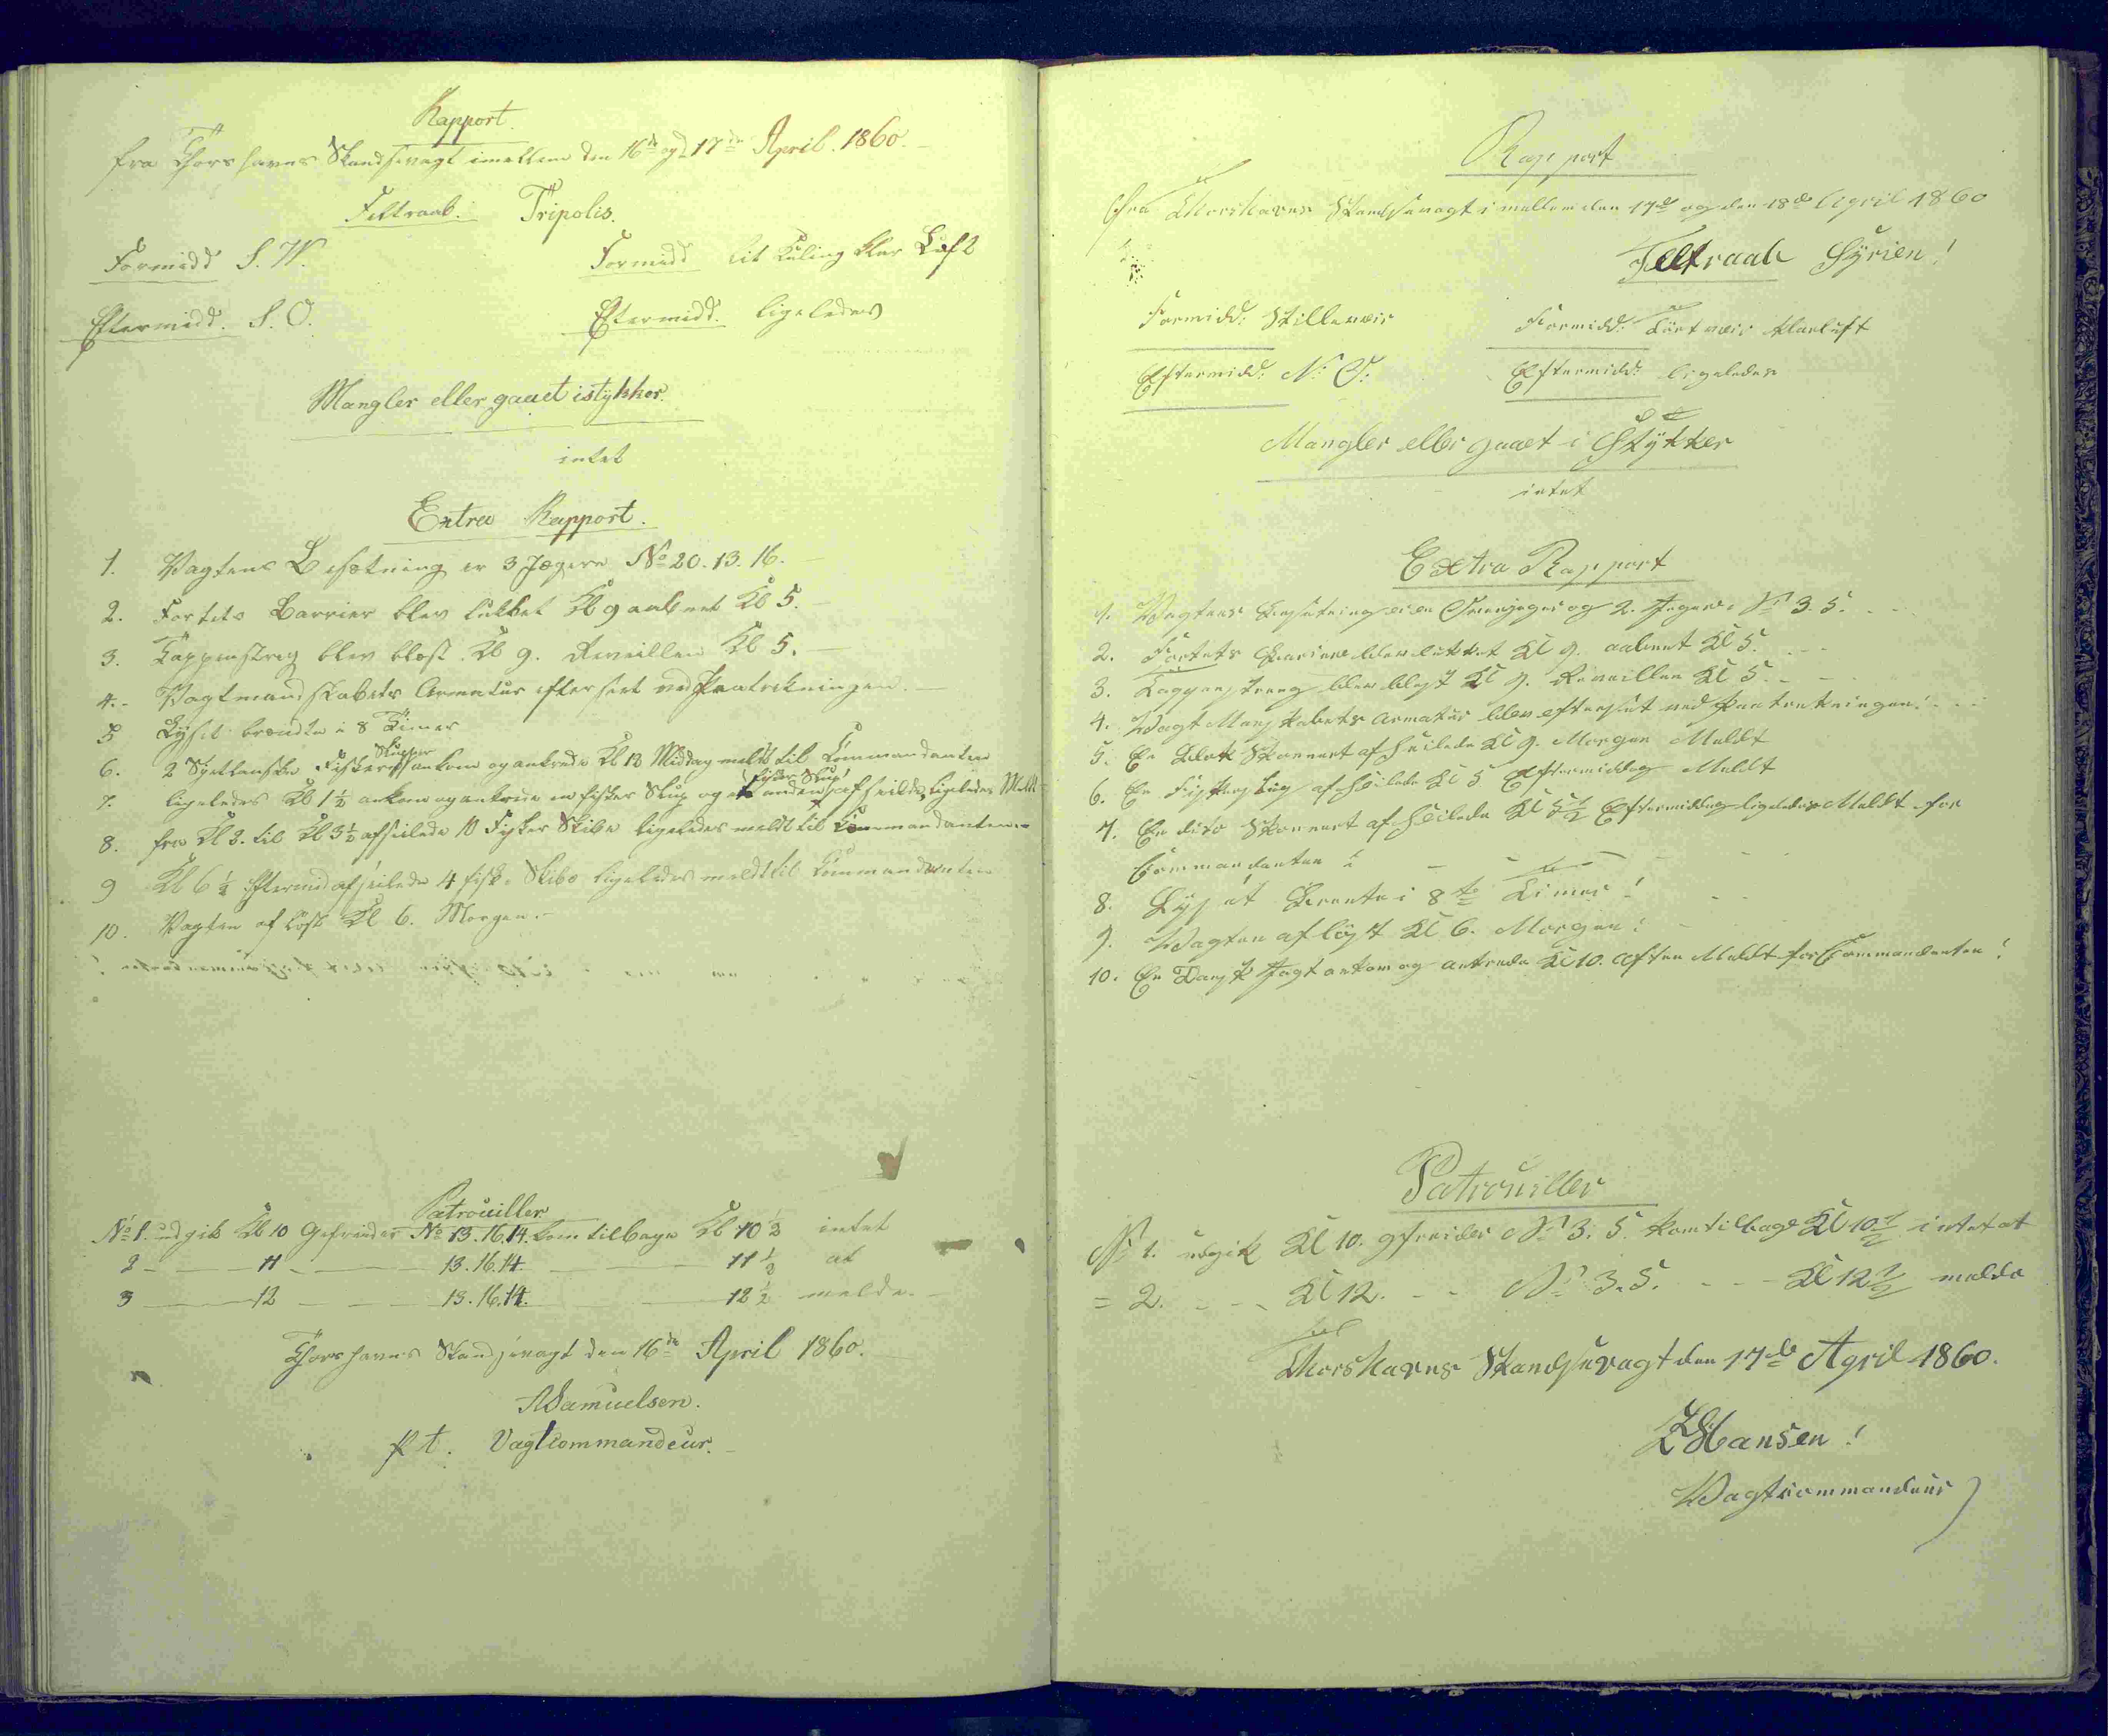 Rapport
fra Thorshavns Skandsevagt imellem den 16de og 17de April 1860.
Feltraab. Tripolis.
Formidd S. W. Formidd lit Kuling klar Luft
Eftermidd. S. O. Eftermidd. ligeledes
Mangler eller gaaet istykker.
intet
Extra Rapport.
1. Vagtens Besætning er 3 Jægere No 20. 13. 16.
2. Fortets Barrier blev lukket Kl 9 aabnet Kl 5.
3. Tappenstreg blev blæst Kl 9. Reveillen Kl 5.
4. Vagtmandskabets Armatur efterseet ved Paatrækningen.
5 Lyset brændte i 8 Timer
6. 2 Fisker Slupper ankom og ankrede Kl 12 Middag meldt til Commandanten
7. ligeledes Kl 1½ ankom og ankrede en fisker Slup og en anden fisker Slup afseilede, ligeledes Meldt
8. fra Kl 3. til Kl 3½ afseilede 10 Fisker Skibe ligeledes meldt til Commandanten.
9 Kl 6¼ Eftermid afseilede 4 fisk. Skibe ligeledes meldt til Commandanten
10. Vagten afløst Kl 6. Morgen.
Patrouiller
No 1. udgik Kl 10 Gefreider No 13. 16. 14. kom tilbage Kl 10½ intet
2 — 11 — 13. 16. 14. — 11½ at
3 — 12 — 13. 16. 14. — 12½ melde.
Thorshavns Skandsevagt den 16de April 1860.
Samuelsen.
p t. Vagtcommandeur.
Rapport
Fra Thorshavns Skandsevagt imellem den 17de og den 18de April 1860
Feltraab Syrien!
Formidd: Stilleveir Formidd: Tört veir klarluft
Eftermidd: N. O: Eftermidd: ligeledes
Mangler eller gaaet i Stÿkker
intet
Extra Rapport
1. Vagtens Besætning er en og 2. Jægere No 3. 5.
2. Fortets Bariere blev lukket Kl 9. aabnet Kl 5.
3. Tappenstreng blev blæst Kl 9. Reveillen Kl 5.
4. Vagt Manskabets Armatur blev efterseet ved Paatrækningen!
5. En Skonnert afseilede Kl 9. Morgen Meldt
6. En Fiskerslup afseilede Kl 5 Eftermiddag Meldt
7. En dito Skonnert afseilede Kl 5½ Eftermiddag ligeledes Meldt for
Commandanten
8. Lyset Brænte i 8te Timer!
9. Vagten afløst Kl 6. Morgen!
10. En Dansk Jagt ankom og ankrede Kl 10. Aften Meldt for Commandanten!
Patrouiller
No 1. udgik Kl 10. gfreider No 3. 5. kom tilbage Kl 10½ intet at
= 2. - - - Kl 12. - - No 3. 5. - - - Kl 12½ melde
Thorshavns Skandsevagt den 17de April 1860.
Hansen!
Vagtcommandeur